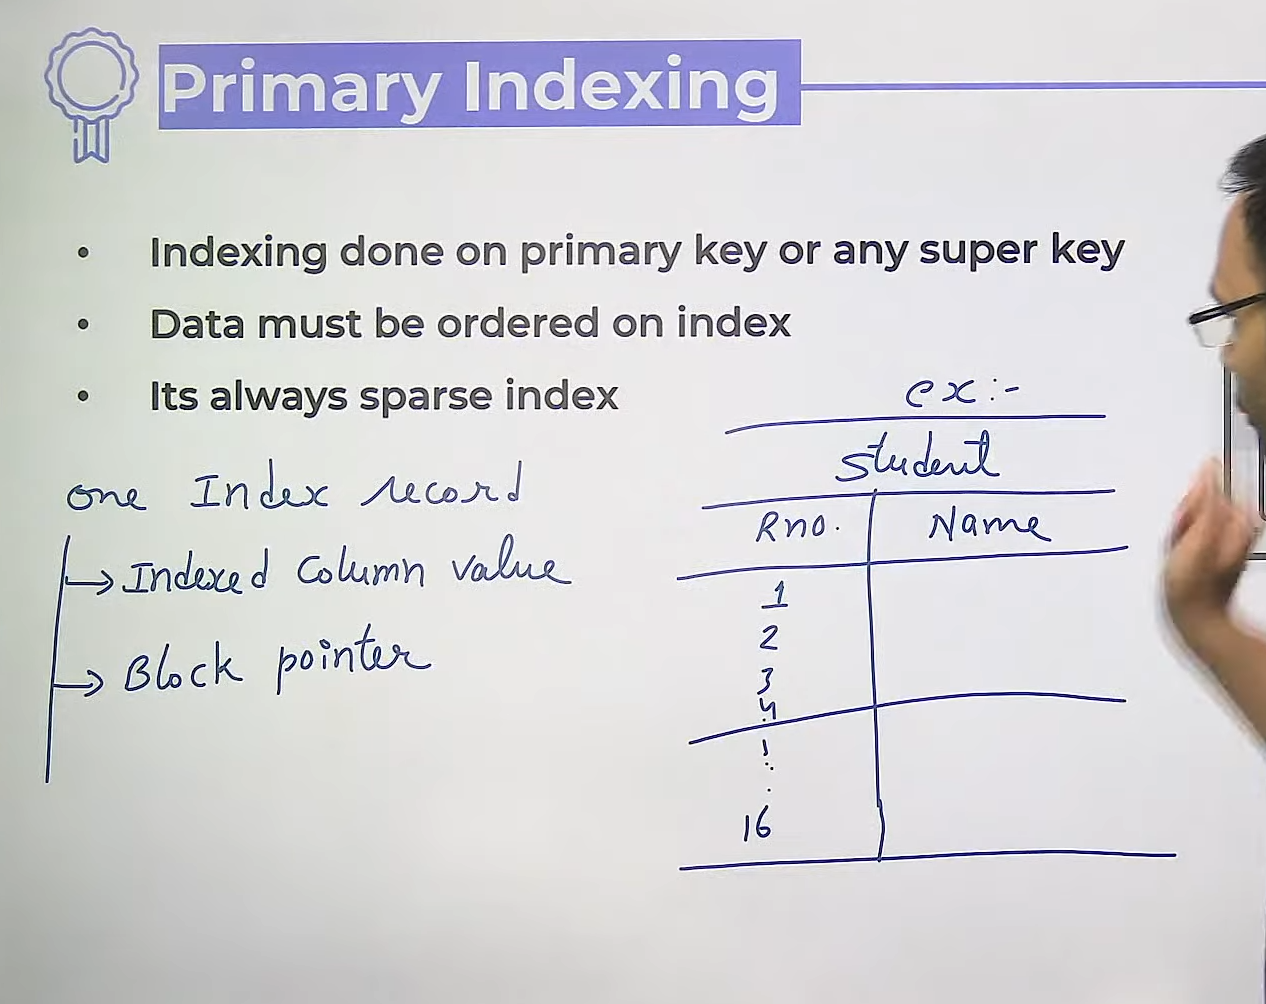 Primary Indexing
• Indexing done on primary key or any super key
• Data must be ordered on index
• Its always sparse index
ex:-
one Index record
→ Indexed Column value
→ Block pointer
Student
Rno. Name
1
2
3
4
16